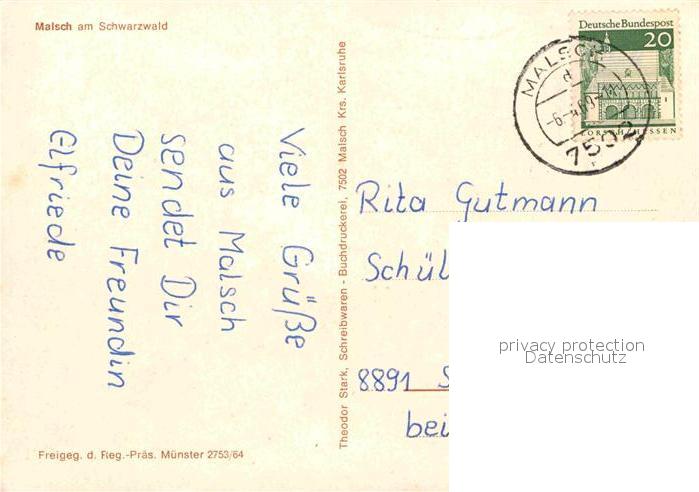 Malsch am Schwarzwald
Viele Grüße
aus Malsch
sendet Dir
Deine Freundin
Elfriede
Freigeg. d. Reg.-Präs. Münster 2753/64
Theodor Stark, Schreibwaren - Buchdruckerei, 7502 Malsch Krs. Karlsruhe
Deutsche Bundespost
20
LORSCH/HESSEN
MALSCH
d
7502
Rita Gutmann
Schül
8891 S
bei
privacy protection
Datenschutz